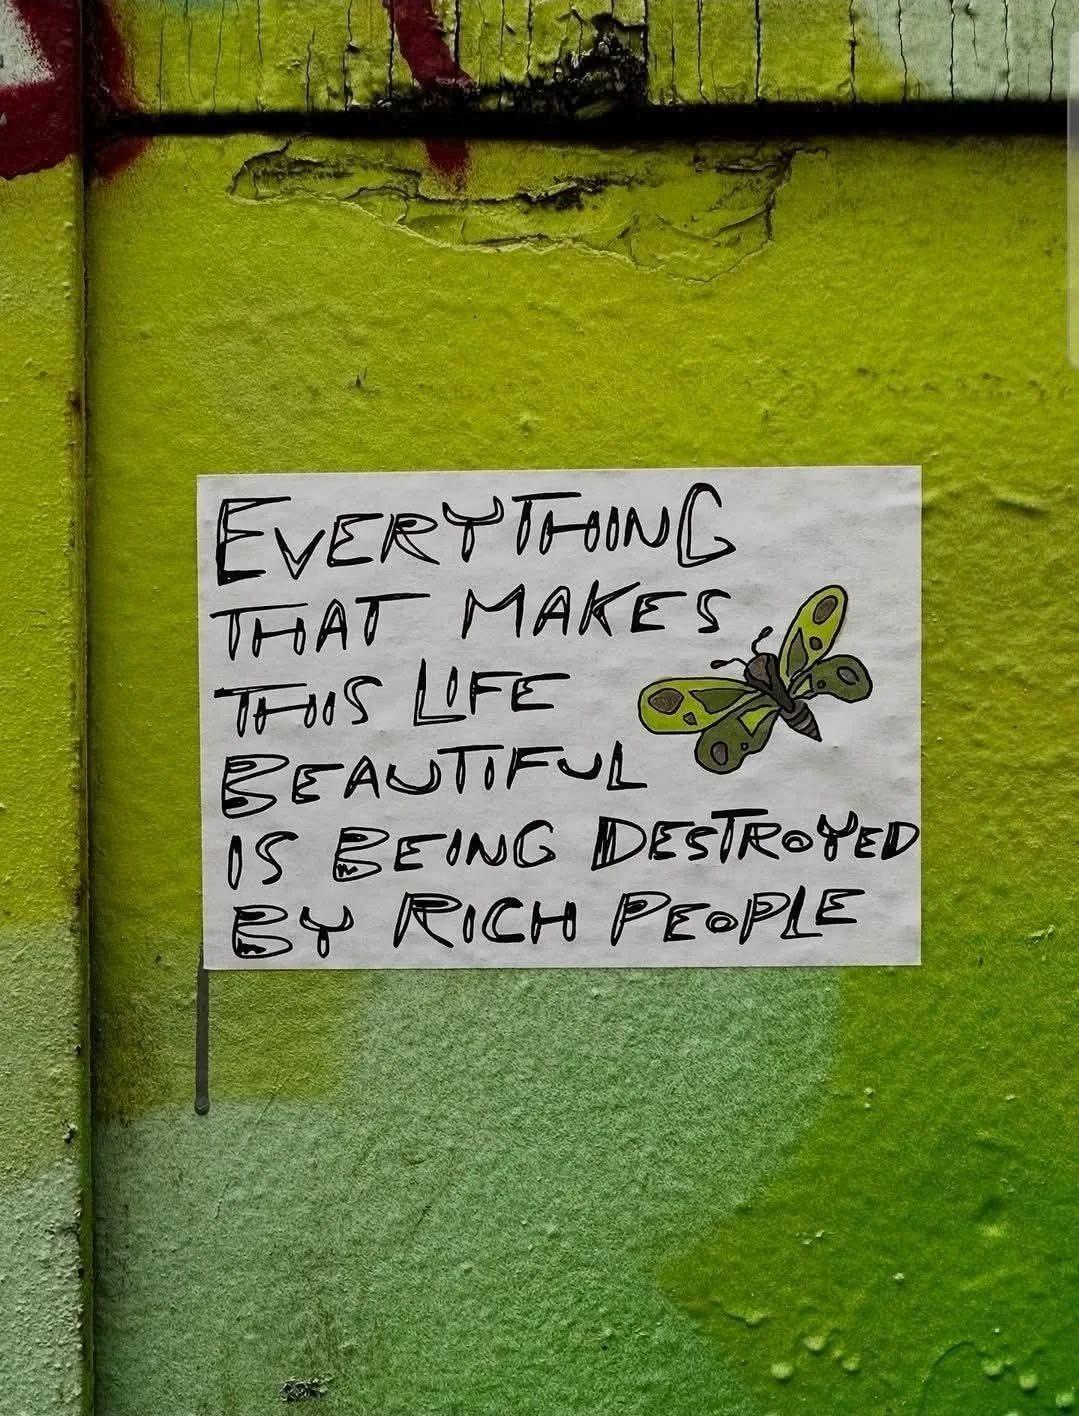 EVERYTHING
THAT MAKES
THIS LIFE
BEAUTIFUL
IS BEING DESTROYED
BY RICH PEOPLE